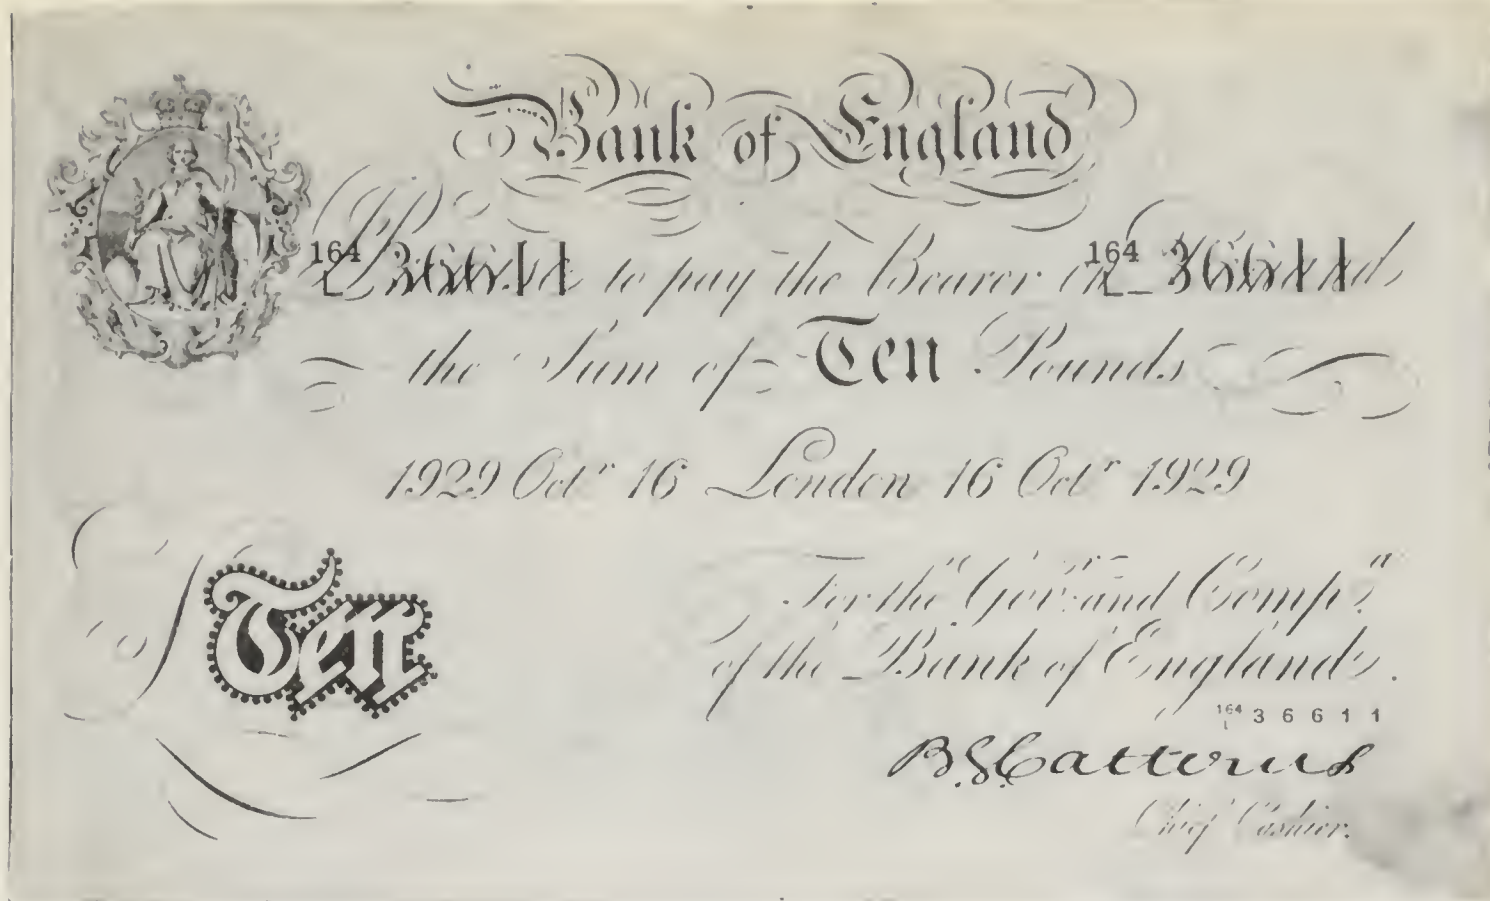 Bank of England
164 L 36611 to pay the Bearer on 164 L 36611
the Sum of Ten Pounds
1929 Octr 16 London 16 Octr 1929
Ten
For the Govr and Compa
of the Bank of England.
164 L 36611
B.G.Catterns
Chief Cashier.